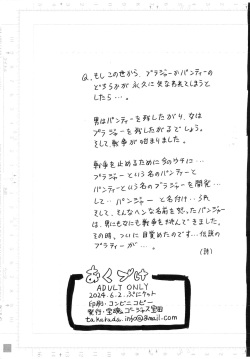 Q. もしこの世から、ブラジャーかパンティーの
どちらかが永久に失なわれてしまうと
したら…。
男はパンティーを残したがり、女は
ブラジャーを残したがるでしょう。
そして戦争が始まりました。
戦争を止めるために今のウチに…
ブラジャーという名のパンティーと
パンティーという名のブラジャーを開発…
して… パンジャーと名付け…
そして、そんなヘンな名前を
は、男にも女にも戦争を挑んできました。
その時、ついに目覚めたのです…伝説の
ブラティーが…。
あくづけ
ADULT ONLY
2024.6.2. ぷにケット
印刷・コンビニコピー
発行・宝魂ゴージャス宝田